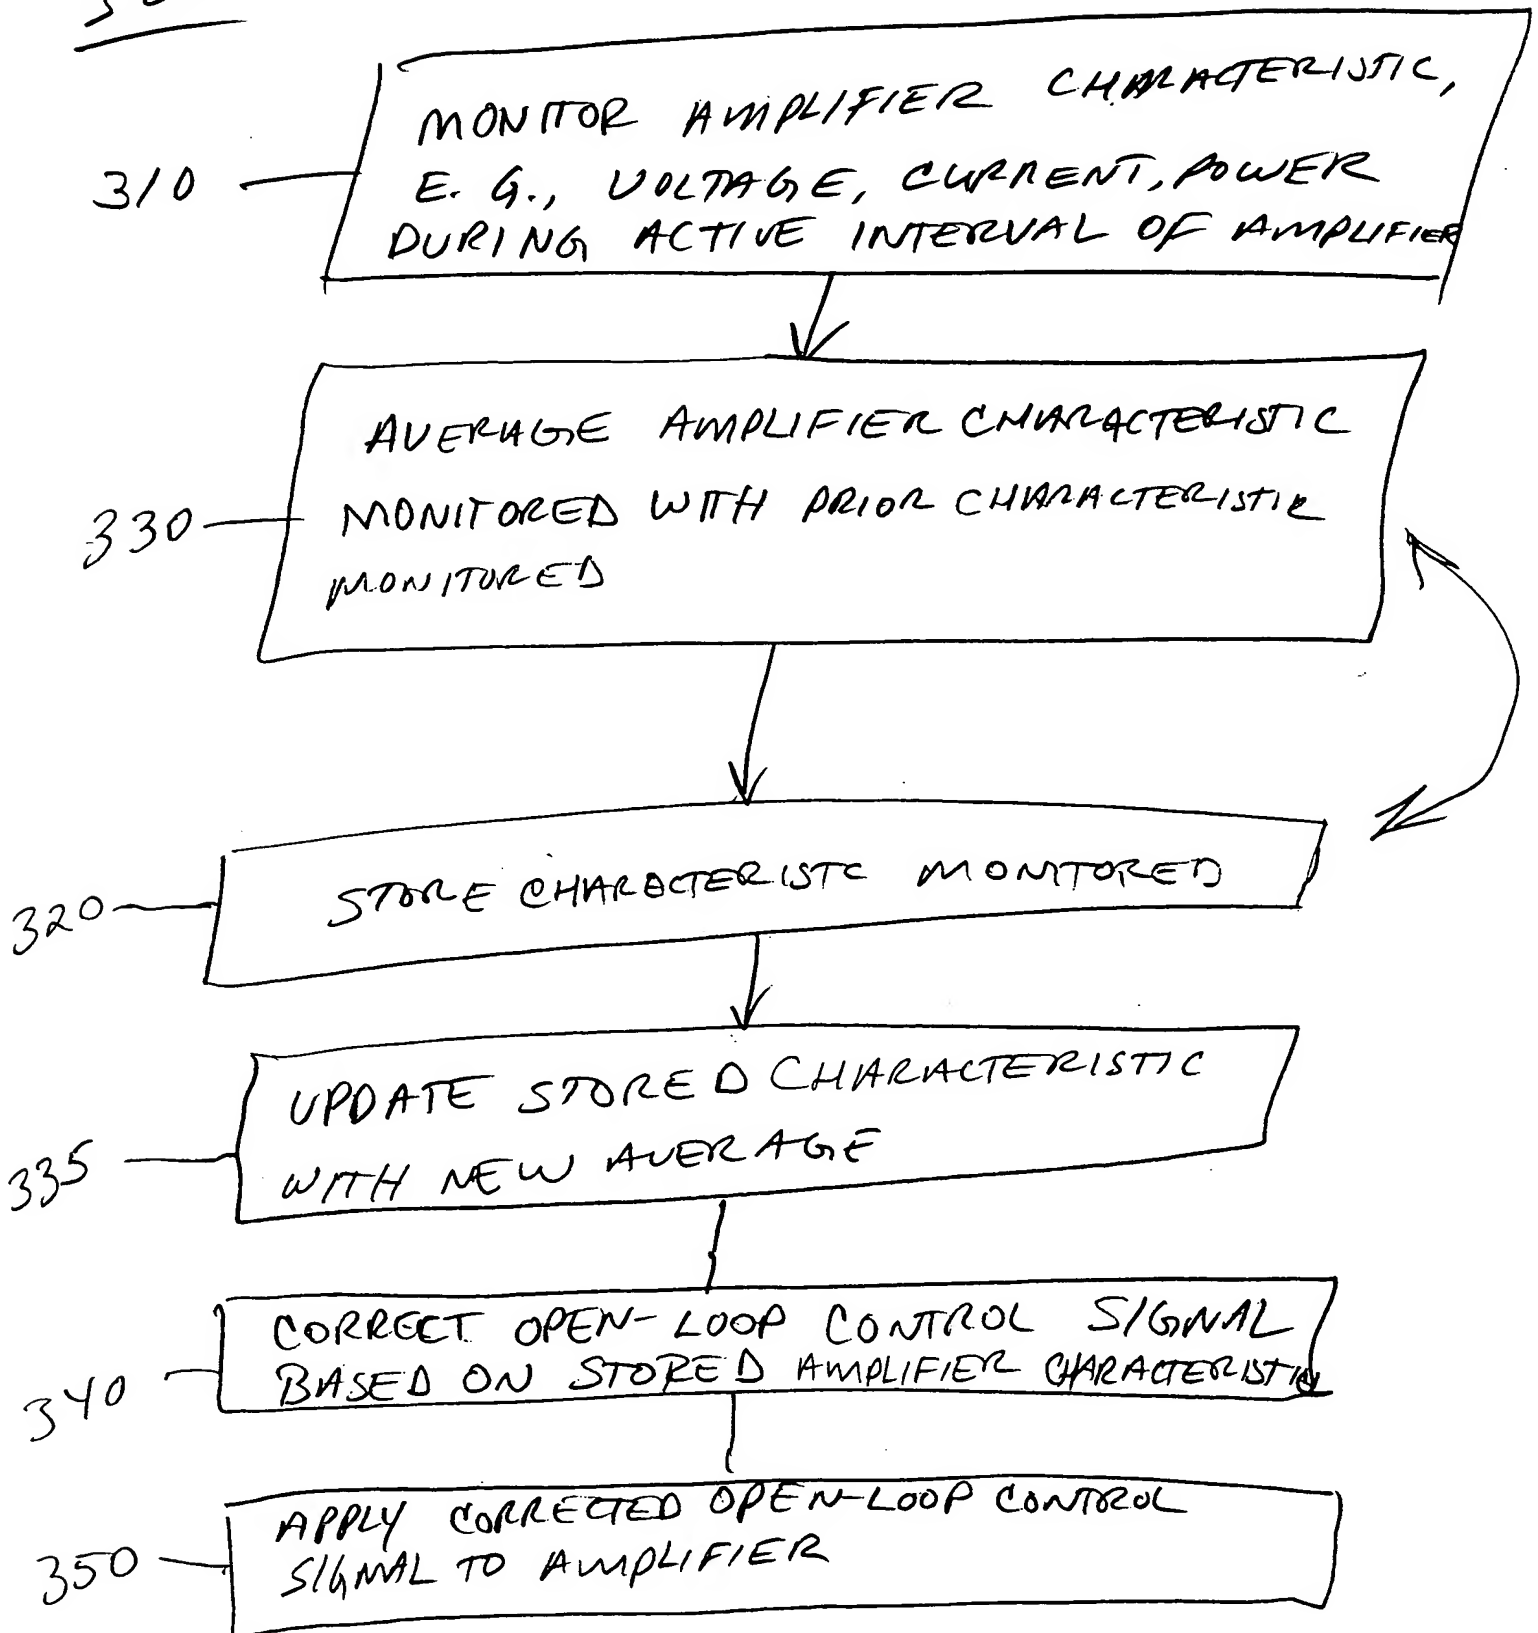 MONITOR AMPLIFIER CHARACTERISTIC,
310
E.G., VOLTAGE, CURRENT, POWER
DURING ACTIVE INTERVAL OF AMPLIFIER
AVERAGE AMPLIFIER CHARACTERISTIC
330
MONITORED WITH PRIOR CHARACTERISTIC
MONITORED
320
STORE CHARACTERISTC MONITORED
UPDATE STORED CHARACTERISTIC
335
WITH NEW AVERAGE
CORRECT OPEN-LOOP CONTROL SIGNAL
340
BASED ON STORED AMPLIFIER CHARACTERISTIC
APPLY CORRECTED OPEN-LOOP CONTROL
350
SIGNAL TO AMPLIFIER